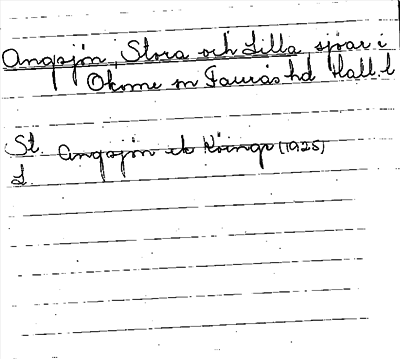 Angsjön, Stora och Lilla sjöar i
Okome sn Faurås hd Hall.l
St. Angsjön ek Köinge (1925)
L.